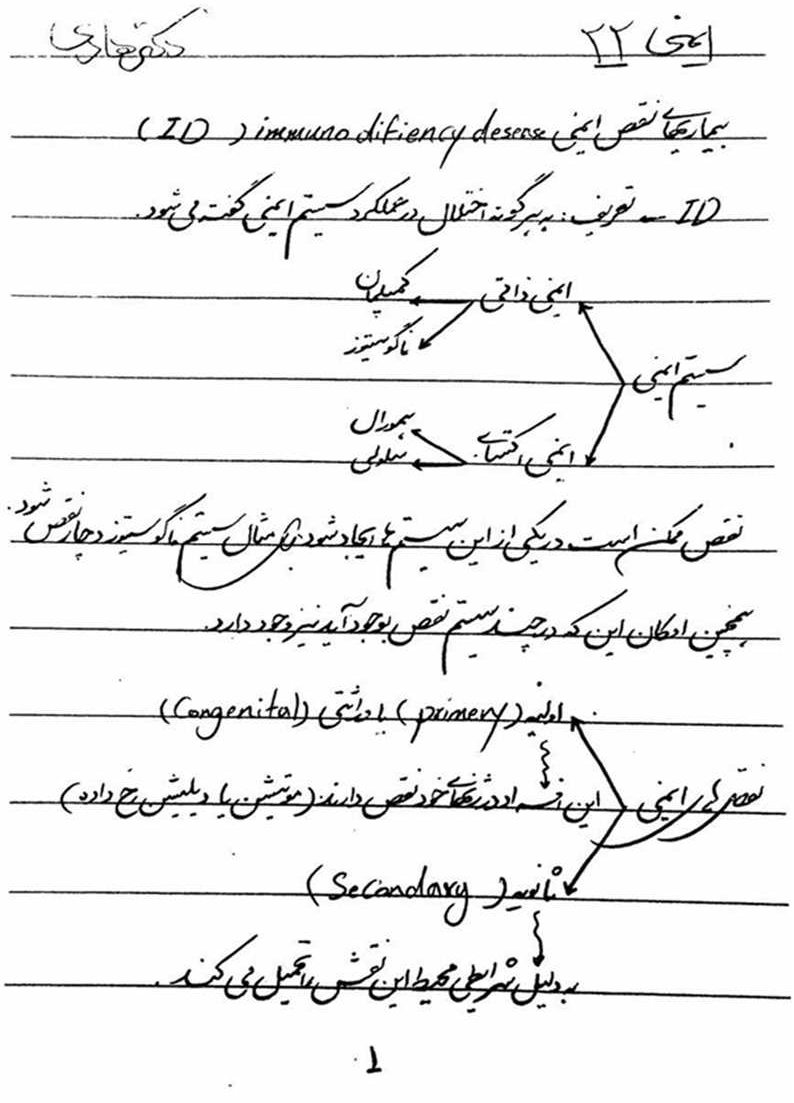 ایمنی ۲۲
دکتر هادی
بیماریهای نقص ایمنی immuno difiency desease (ID)
ID ← تعریف: به هر گونه اختلال در عملکرد سیستم ایمنی گفته می شود.
ایمنی ذاتی
کمپلمان
فاگوسیتوز
سیستم ایمنی
ایمنی اکتسابی
همورال
سلولی
نقص ممکن است در یکی از این سیستم ها ایجاد شود: برای مثال سیستم فاگوسیتوز دچار نقص شود.
همچنین امکان این که در چند سیستم نقص بوجود آید نیز وجود دارد.
اولیه (primery) یا وراثتی (Congenital)
نقص های ایمنی
این افراد در ژنهای خود نقص دارند. (موتیشن یا دیلیشن رخ داده)
ثانویه (Secondary)
به دلیل شرایطی محیط این نقص را تحمیل می کند.
۱